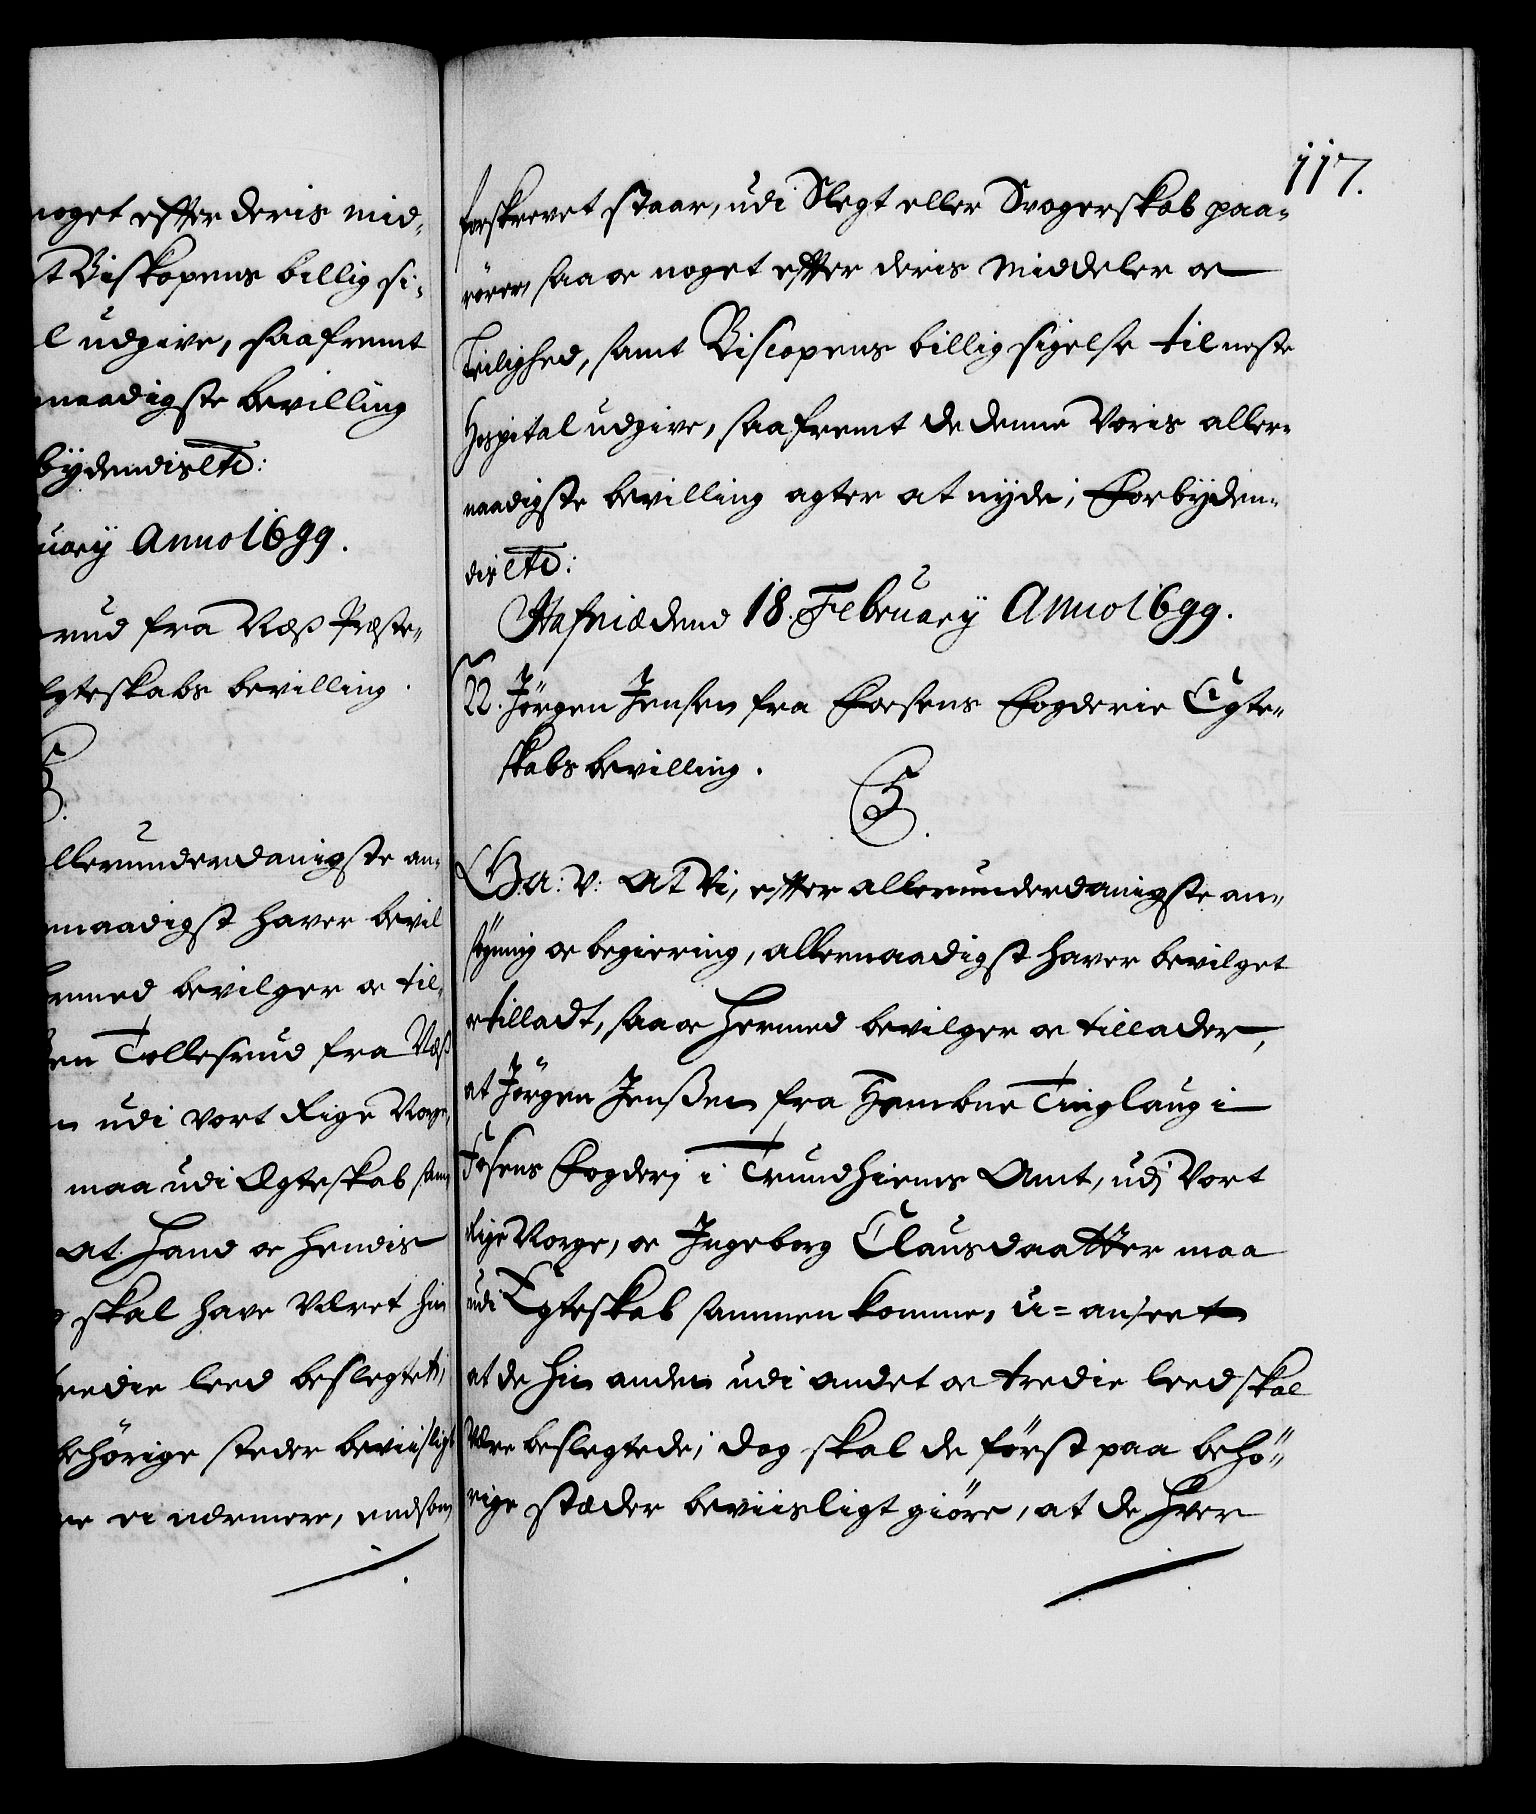 noget effter deris mid-
st Biskopens billig si-
l udgive, saafremt
naadigste bevilling
bydendis etc:
uary Anno 1699.
rud fra Næss Præste-
Egteskabs bevilling.
llerunderdanigste an-
naadigst haver bevil
ermed bevilger oc til-
en Tollefsrud fra Næss
n udi vort Rige Norge,
maa udi Ægteskab sam
at hand oc hendis
skal have Været hin
tredie leed beslegtet;
behörige steder beviisligt
ei nærmere, end som
117.
forskrevet staar, udi Slegt eller Svogerskab paa-
rörer, saa oc noget effter deris Middeler oc
Leilighed, samt Biscopens billig sigelse til neste
Hospital udgive, saafremt de denne Voris aller-
naadigste bevilling agter at nyde; Forbyden-
dis etc:
Hafniæ dend 18. February Anno 1699.
22. Jörgen Jensen fra Fosens Fogderie Egte-
skabs bevilling.
C5.
G: A: V: At Vi, effter allerunderdanigste an-
sögning oc begiering, allernaadigst haver bevilget
oc tilladt, saa oc hermed bevilger oc tillader,
at Jörgen Jenssen fra Hembne Tinglaug i
Fosens Fogderj i Trundhiems Amt, udj Vort
Rige Norge, oc Ingeborg Clausdaatter maa
udi Egteskab sammen komme, u=anseet
at de hin anden udi andet oc tredie leed skal
Være beslegtede; dog skal de först paa behö-
rige stæder beviisligt giöre, at de hver